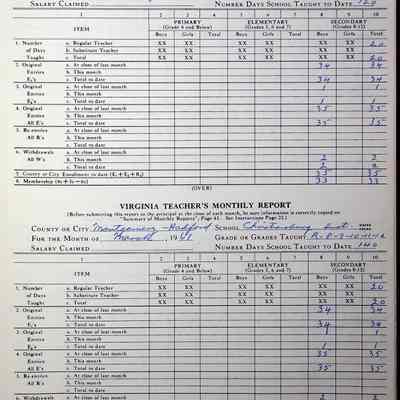 SALARY CLAIMED NUMBER DAYS SCHOOL TAUGHT TO DATE 120
1 2 3 4 5 6 7 8 9 10
ITEM PRIMARY (Grade 4 and Below) ELEMENTARY (Grades 5, 6 and 7) SECONDARY (Grades 8-12)
Boys Girls Total Boys Girls Total Boys Girls Total
1. Number a. Regular Teacher XX XX XX XX XX XX 20
of Days b. Substitute Teacher XX XX XX XX XX XX
Taught c. Total XX XX XX XX XX XX 20
2. Original a. At close of last month 34 34
Entries b. This month
E₁'s c. Total to date 34 34
3. Original a. At close of last month 1 1
Entries b. This month
c. Total to date 1 1
4. Original a. At close of last month 35 35
Entries b. This month
All E's c. Total to date 35 35
5. Re-entries a. At close of last month
All R's b. This month
c. Total to date
6. Withdrawals a. At close of last month 2 2
All W's b. This month
c. Total to date 2 2
7. County or City Enrollment to date 35 35
8. Membership 33 33
(OVER)
VIRGINIA TEACHER'S MONTHLY REPORT
(Before submitting this report to the principal at the close of each month, be sure information is correctly copied on
"Summary of Monthly Reports", Page 41. See Instructions Page 21.)
COUNTY OR CITY Montgomery-Radford SCHOOL Christiansburg Inst.
FOR THE MONTH OF 19 GRADE OR GRADES TAUGHT
SALARY CLAIMED NUMBER DAYS SCHOOL TAUGHT TO DATE 140
1 2 3 4 5 6 7 8 9 10
ITEM PRIMARY (Grade 4 and Below) ELEMENTARY (Grades 5, 6 and 7) SECONDARY (Grades 8-12)
Boys Girls Total Boys Girls Total Boys Girls Total
1. Number a. Regular Teacher XX XX XX XX XX XX 20
of Days b. Substitute Teacher XX XX XX XX XX XX
Taught c. Total XX XX XX XX XX XX 20
2. Original a. At close of last month 34 34
Entries b. This month
E₁'s c. Total to date 34 34
3. Original a. At close of last month 1 1
Entries b. This month
E₂'s c. Total to date 1 1
4. Original a. At close of last month 35 35
Entries b. This month
All E's c. Total to date 35 35
5. Re-entries a. At close of last month
All R's b. This month
c. Total to date
6. Withdrawals a. At close of last month 2 2